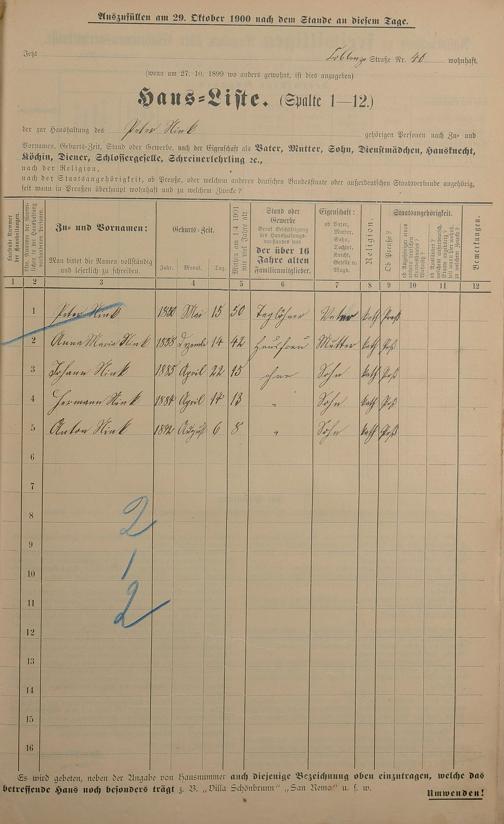 Auszufüllen am 29. Oktober 1900 nach dem Stande an diesem Tage.
Jetzt Coblenzer Straße Nr. 40 wohnhaft.
(wenn am 27. 10. 1899 wo anders gewohnt, ist dies anzugeben)
Haus-Liste. (Spalte 1—12.)
der zur Haushaltung des Peter Nink gehörigen Personen nach Zu- und
Vornamen, Geburts-Zeit, Stand oder Gewerbe, nach der Eigenschaft als Vater, Mutter, Sohn, Dienstmädchen, Hausknecht,
Köchin, Diener, Schlossergeselle, Schreinerlehrling ꝛc.,
nach der Religion,
nach der Staatsangehörigkeit, ob Preuße, oder welchem anderen deutschen Bundesstaate oder außerdeutschen Staatsverbande angehörig,
seit wann in Preußen überhaupt wohnhaft und zu welchem Zwecke?
Zu- und Vornamen:
Man bittet die Namen vollständig und leserlich zu schreiben.
Geburts-Zeit.
Jahr. Monat. Tag.
Stand oder Gewerbe
der über 16 Jahre alten Familienmitglieder.
Eigenschaft:
ob Vater, Mutter, Sohn, Tochter, Knecht, Geselle u. Magd.
Religion.
Staatsangehörigkeit.
Ob Preuße?
Bemerkungen.
1 2 3 4 5 6 7 8 9 10 11 12
1 Peter Nink Mai 15 50 Taglöhner Vater kath
2 Anna Maria Nink 1858 Dezember 14 42 Hausfrau Mutter kath
3 Johann Nink 1885 April 22 15 ohne Sohn kath
4 Hermann Nink April 14 13 " Sohn kath
5 Anton Nink 1892 August 6 8 " Sohn kath
6
7
8
9
10
11
12
13
14
15
16
2
1
2
Es wird gebeten, neben der Angabe von Hausnummer auch diejenige Bezeichnung oben einzutragen, welche das
betreffende Haus noch besonders trägt z. B. „Villa Schönbrunn" „San Remo" u. s. w.
Umwenden!